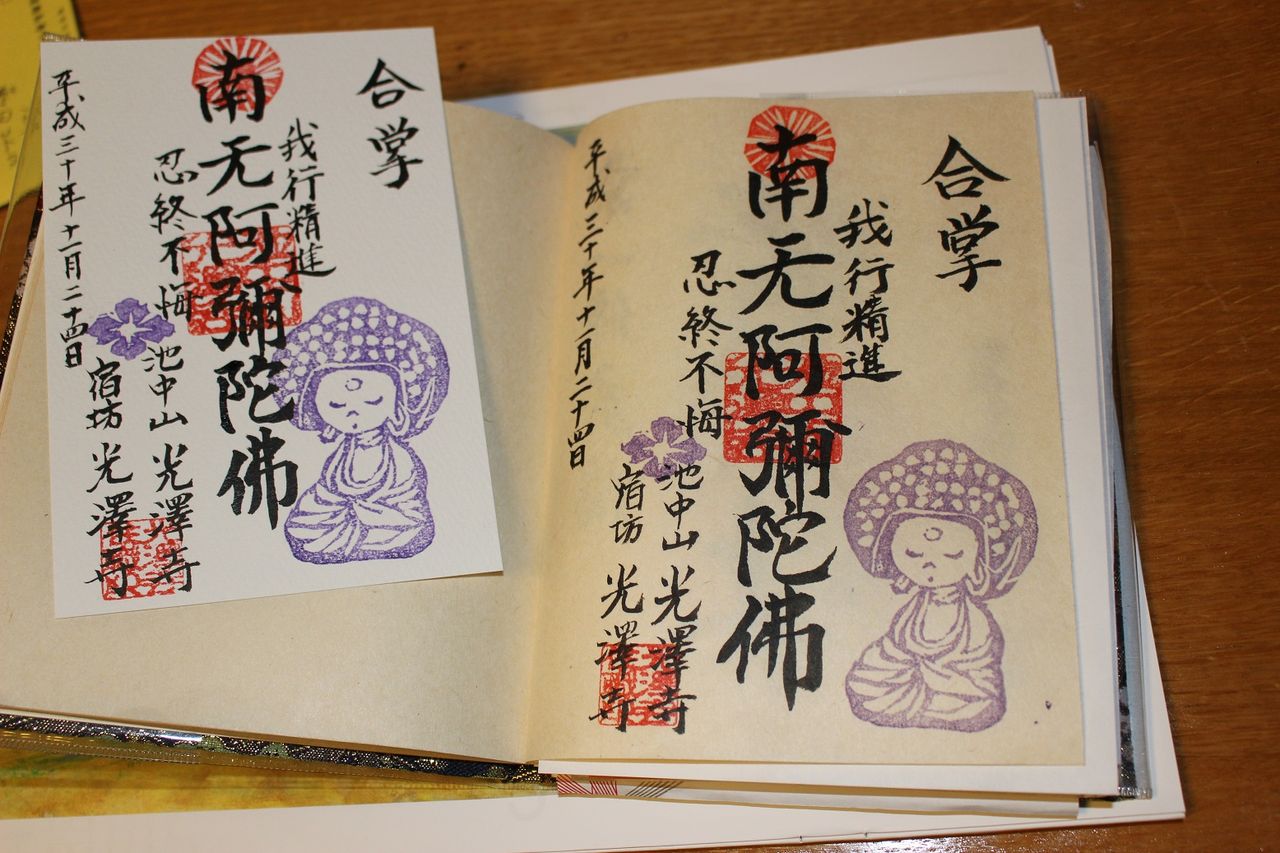 合掌
我行精進
南无阿彌陀佛
忍終不悔
池中山 光澤寺
宿坊 光澤寺
平成三十年十一月二十四日
合掌
我行精進
南无阿彌陀佛
忍終不悔
池中山 光澤寺
宿坊 光澤寺
平成三十年十一月二十四日